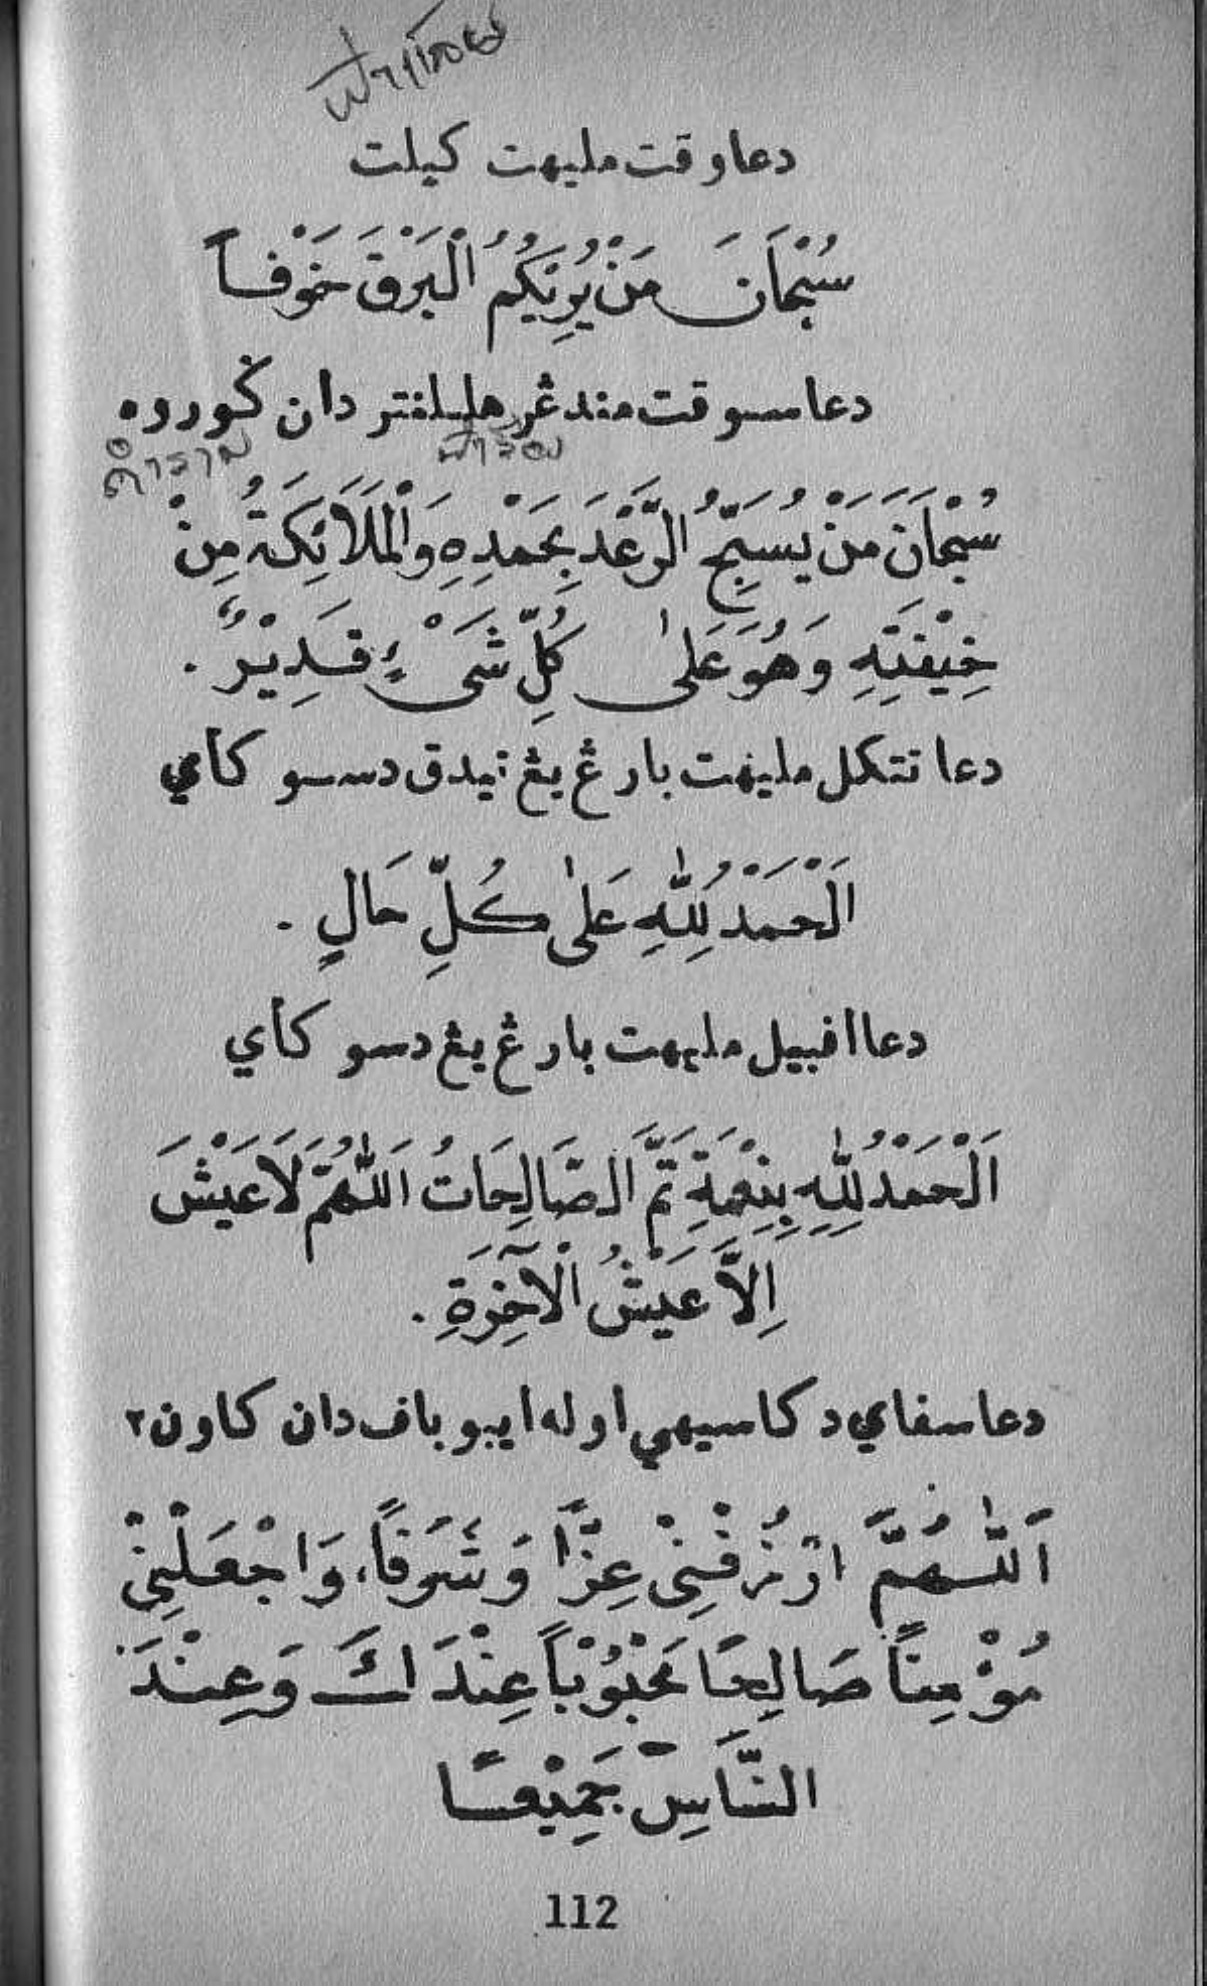 ฟ้าแลบ
دعا وقت مليهت كيلت
سُبْحَانَ مَنْ يُرِيْكُمُ الْبَرْقَ خَوْفًا
دعا سوقت مندڠر هليلنتر دان ڬوروه
คำราม ฟ้าร้อง
سُبْحَانَ مَنْ يُسَبِّحُ الرَّعْدَ بِحَمْدِهِ وَالْمَلَائِكَةُ مِنْ
خِيْفَتِهِ وَهُوَ عَلٰى كُلِّ شَىْءٍ قَدِيْرٌ .
دعا تتكل مليهت بارڠ يڠ تيدق دسسو كاءي
اَلْحَمْدُ لِلّٰهِ عَلٰى كُلِّ حَالٍ .
دعا افبيل مليهت بارڠ يڠ دسو كاءي
اَلْحَمْدُ لِلّٰهِ بِنِعْمَةِ تَمَّ الصَّالِحَاتُ اَللّٰهُمَّ لَا عَيْشَ
اِلَّا عَيْشُ الْآخِرَةِ .
دعا سفاي دكاسيهي اوله ايبو باف دان كاون٢
اَللّٰهُمَّ ارْزُقْنِىْ عِزًّا وَشَرَفًا، وَاجْعَلْنِىْ
مُؤْمِنًا صَالِحًا مَحْبُوْبًا عِنْدَكَ وَعِنْدَ
النَّاسِ جَمِيْعًا
112